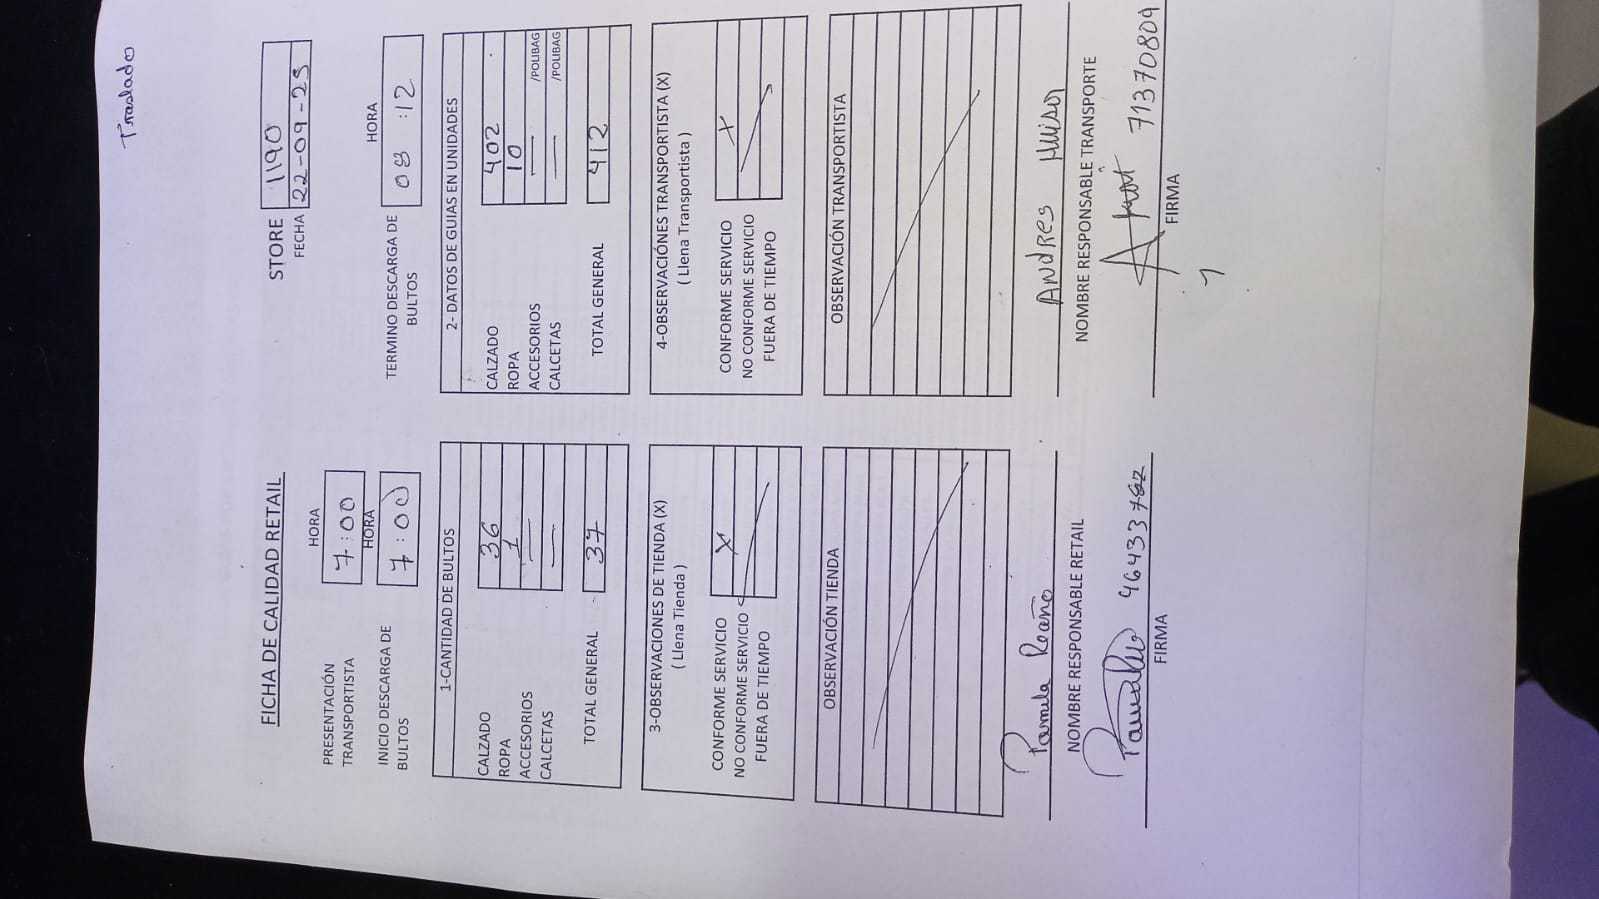 Traslado
FICHA DE CALIDAD RETAIL
STORE 1190
FECHA 22-09-25
HORA
PRESENTACIÓN TRANSPORTISTA 7:00
HORA
INICIO DESCARGA DE BULTOS 7:00
HORA
TERMINO DESCARGA DE BULTOS 08:12
1-CANTIDAD DE BULTOS
CALZADO 36
ROPA 1
ACCESORIOS —
CALCETAS —
TOTAL GENERAL 37
2- DATOS DE GUIAS EN UNIDADES
CALZADO 402
ROPA 10
ACCESORIOS — /POLIBAG
CALCETAS — /POLIBAG
TOTAL GENERAL 412
3-OBSERVACIONES DE TIENDA (X)
( Llena Tienda )
CONFORME SERVICIO X
NO CONFORME SERVICIO
FUERA DE TIEMPO
4-OBSERVACIÓNES TRANSPORTISTA (X)
( Llena Transportista )
CONFORME SERVICIO X
NO CONFORME SERVICIO
FUERA DE TIEMPO
OBSERVACIÓN TIENDA
OBSERVACIÓN TRANSPORTISTA
Pamela Reaño
NOMBRE RESPONSABLE RETAIL
46433782
FIRMA
Andres
NOMBRE RESPONSABLE TRANSPORTE
71370809
FIRMA